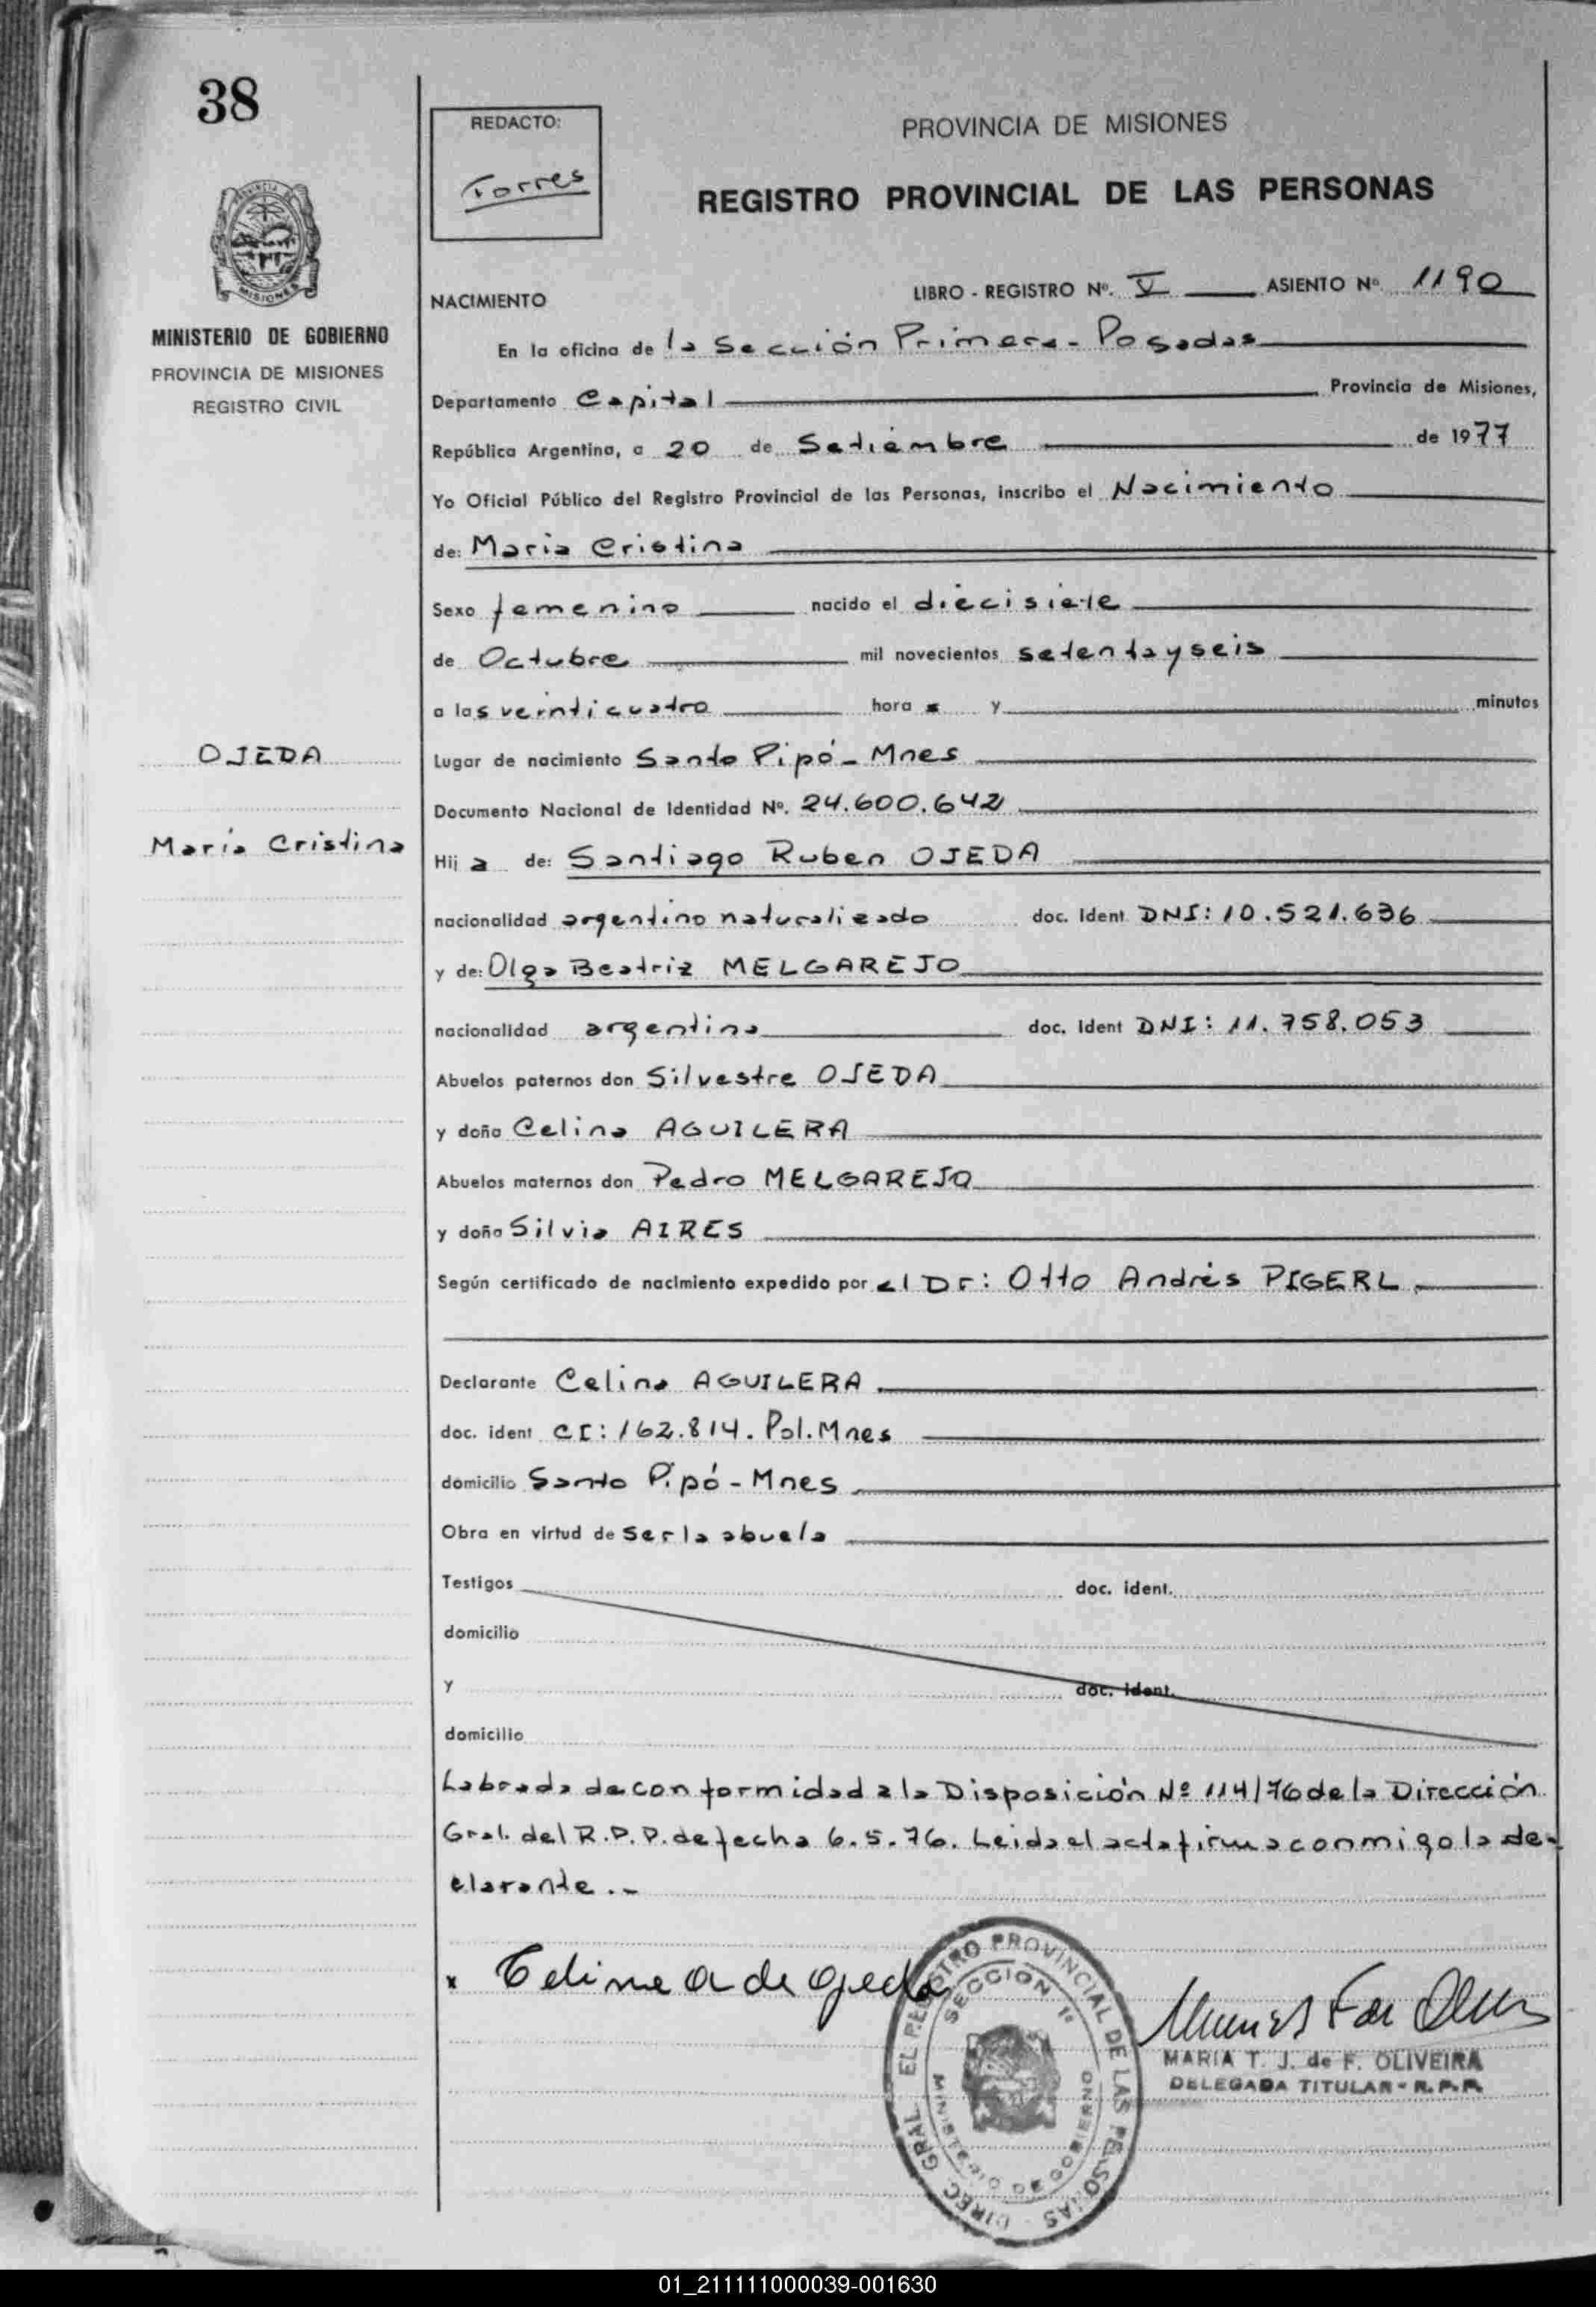 38
REDACTO:
Torres
PROVINCIA DE MISIONES
REGISTRO PROVINCIAL DE LAS PERSONAS
PROVINCIA DE
MISIONES
MINISTERIO DE GOBIERNO
PROVINCIA DE MISIONES
REGISTRO CIVIL
NACIMIENTO
LIBRO - REGISTRO Nº. V ASIENTO Nº 1190
En la oficina de la Sección Primera - Posadas
Departamento Capital Provincia de Misiones,
República Argentina, a 20 de Setiembre de 1977
Yo Oficial Público del Registro Provincial de las Personas, inscribo el Nacimiento
de: Maria Cristina
Sexo femenino nacido el diecisiete
de Octubre mil novecientos setenta y seis
a las veinticuatro hora y minutos
OJEDA
Lugar de nacimiento Santo Pipó - Mnes
Documento Nacional de Identidad Nº. 24.600.642
María Cristina
Hij a de: Santiago Ruben OJEDA
nacionalidad argentino naturalizado doc. Ident DNI: 10.521.636
y de: Olga Beatriz MELGAREJO
nacionalidad argentina doc. Ident DNI: 11.758.053
Abuelos paternos don Silvestre OJEDA
y doña Celina AGUILERA
Abuelos maternos don Pedro MELGAREJO
y doña Silvia AIRES
Según certificado de nacimiento expedido por el Dr: Otto Andrés PIGERL.
Declarante Celina AGUILERA
doc. ident CI: 162.814. Pol. Mnes
domicilio Santo Pipó - Mnes
Obra en virtud de ser la abuela
Testigos doc. ident.
domicilio
y doc. ident.
domicilio
Labrada de conformidad a la Disposición Nº 114/76 de la Dirección
Gral. del R.P.P. de fecha 6.5.76. Leida el acta firma conmigo la de-
clarante.-
x Celina A de ojeda
DIREC. GRAL. EL REGISTRO PROVINCIAL DE LAS PERSONAS
SECCION 1ª
MINISTERIO DE GOBIERNO
MARIA T. J. de F. OLIVEIRA
DELEGADA TITULAR - R.P.P.
01_211111000039-001630